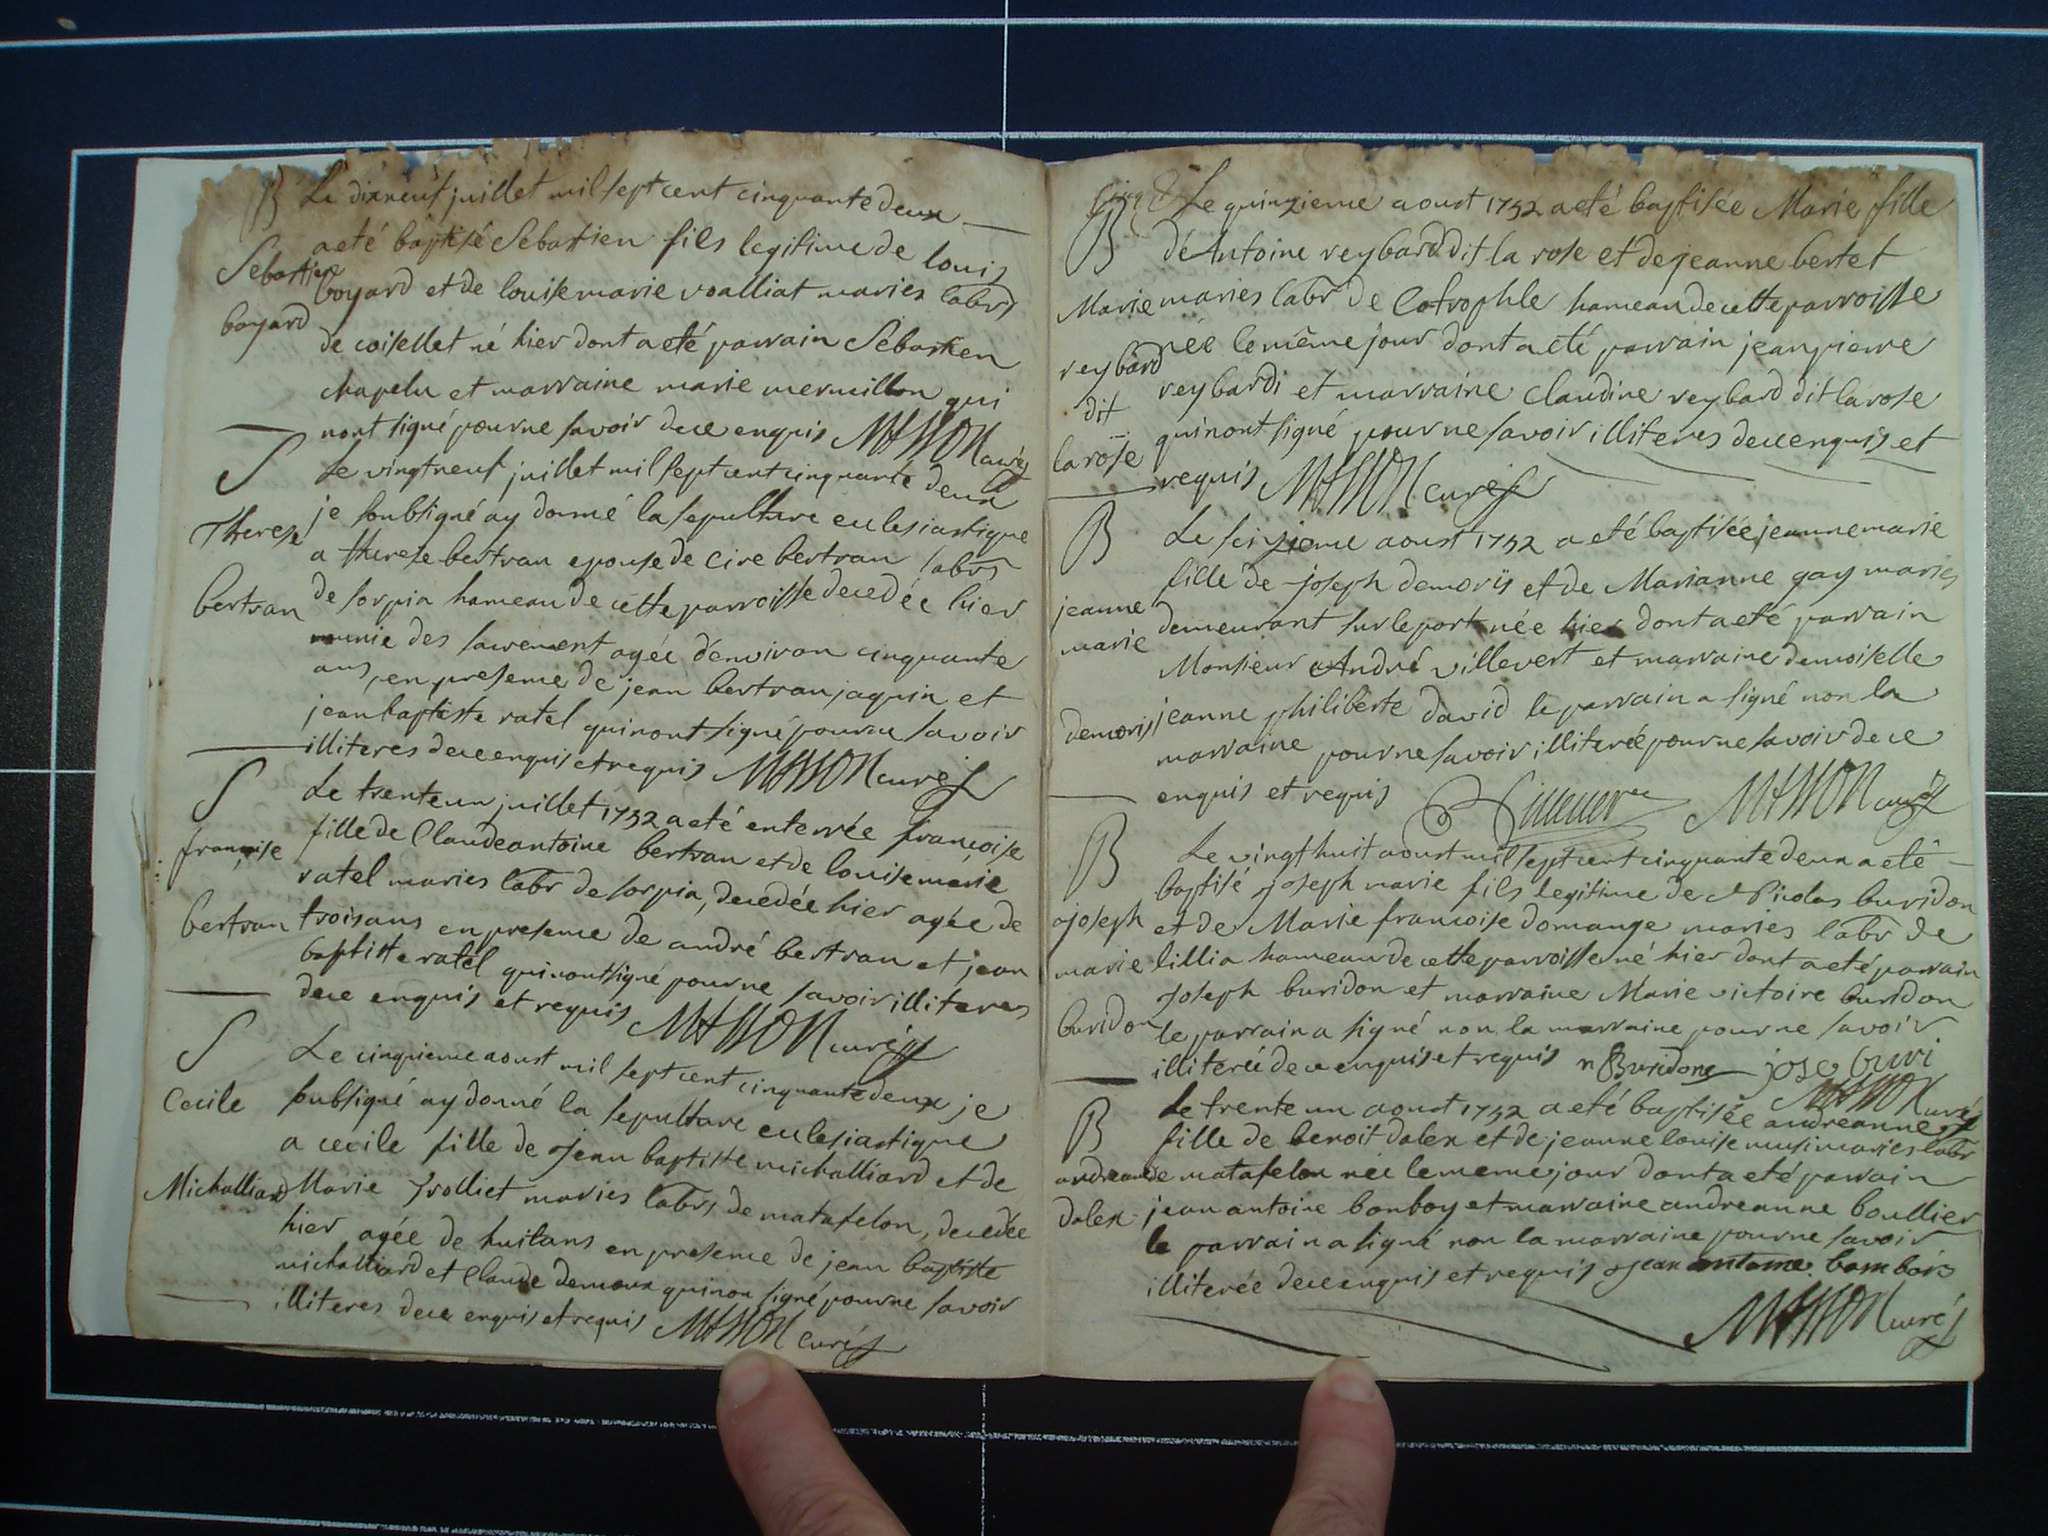 B Le dixneuf juillet mil sept cent cinquante deux
a eté baptisé Sebastien fils legitime de louis
Sebastien boyard et de louise marie voalliat mariés labrs
boyard de coisellet né hier dont a eté parrain Sebastien
chapelu et marraine marie mermillon qui
nont signé pour ne savoir de ce enquis MASSON curé
S Le vingtneuf juillet mil sept cent cinquante deux
Therese je soubsigné ay donné la sepulture eclesiastique
a therese bertran epouse de cire bertran labrs
bertran de sorpia hameau de cette parroisse decedée hier
munie des sacrement agée d'environ cinquante
ans, en presence de jean bertran jaquin et
jean baptiste ratel qui nont signé pour ne savoir
illiteres de ce enquis et requis MASSON curé
S Le trente un juillet 1752 a eté enterrée francoise
francoise fille de Claude antoine bertran et de louise marie
ratel maries labr de sorpia, decedée hier agée de
bertran trois ans en presence de andré bertran et jean
baptiste ratel qui nont signé pour ne savoir illiteres
de ce enquis et requis MASSON curé
S Le cinquieme aoust mil sept cent cinquante deux je
Cecile soubsigné ay donné la sepulture eclesiastique
a cecile fille de jean baptiste michalliard et de
Michalliard Marie trolliet maries labrs de matafelon, decedée
hier agée de huit ans en presence de jean baptiste
michalliard et Claude demoux qui non signé pour ne savoir
illiteres de ce enquis et requis MASSON curé
B Le quinzieme aoust 1752 a eté baptisée Marie fille
de Antoine reybard dit la rose et de jeanne bertet
Marie maries labr de Cotrophle hameau de cette parroisse
reybard née le même jour dont a eté parrain jean pierre
dit reybardi et marraine Claudine reybard dit la rose
la rose qui nont signé pour ne savoir illiteres de ce enquis et
requis MASSON curé
B Le seizieme aoust 1752 a eté baptisée jeanne marie
fille de joseph demoris et de Marianne gay maries
jeanne demeurant sur le port née hier dont a eté parrain
marie Monsieur André villevert et marraine demoiselle
demoris jeanne philiberte david le parrain a signé non la
marraine pour ne savoir illiterée pour ne savoir de ce
enquis et requis MASSON curé
B Le vingt huit aoust mil sept cent cinquante deux a eté
baptisé joseph marie fils legitime de Nicolas buridon
joseph et de Marie francoise domange maries labr de
marie lillia hameau de cette parroisse né hier dont a eté parrain
joseph buridon et marraine Marie victoire buridon
buridon le parrain a signé non la marraine pour ne savoir
illiterée de ce enquis et requis n Buridon jose buri
MASSON curé
B Le trente un aoust 1752 a eté baptisée andreanne
fille de benoit dalex et de jeanne louise musi maries labr
andreanne de matafelon née le meme jour dont a eté parrain
dalex jean antoine bonboy et marraine andreanne boullier
le parrain a signé non la marraine pour ne savoir
illiterée de ce enquis et requis jean antoine bambois
MASSON curé